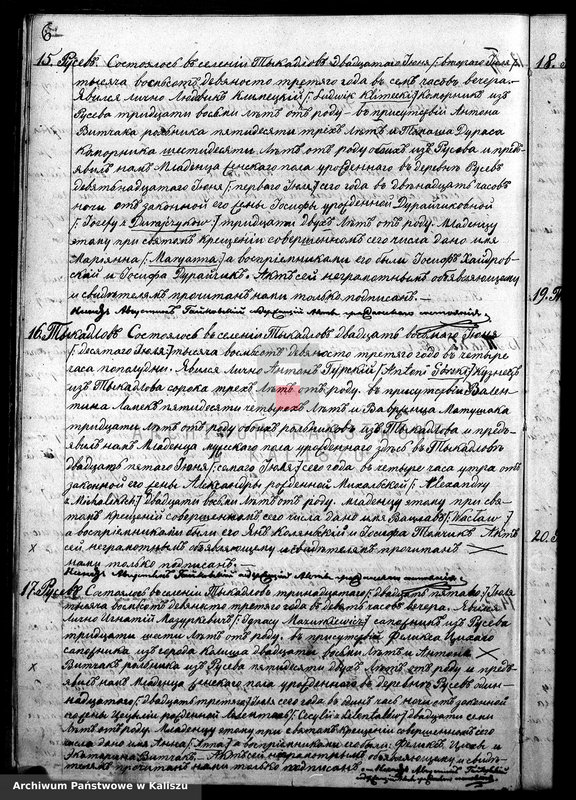 15. Русевъ. Состоялось въ селеніи Тыкадловъ двадцатаго Іюня /: втораго Іюля :/
тысяча восемьсотъ девяносто третяго года въ семь часовъ вечера.
Явился лично Людвикъ Климецкій /: Ludwik Klimecki :/ Копорникъ изъ
Русева тридцати восьми лѣтъ отъ роду – въ присутствіи Антона
Витчака рольника пятидесяти трехъ лѣтъ и Томаша Дураса
Капорника шестидесяти лѣтъ отъ роду обоихъ изъ Русева и предъ-
явилъ намъ Младенца женского пола урожденнаго въ деревнѣ Русевъ
девятьнадцатаго Іюня /: перваго Іюля :/ сего года въ двѣнадцать часовъ
ночи отъ законной его жены Іосифы урожденной Дурайчиковной
/: Józefy z Durajczyków :/ тридцати двухъ лѣтъ отъ роду. Младенцу
этому при святомъ крещеніи совершенномъ сего числа дано имя
Маріянна /: Maryanna :/ а воспріемниками его были Іосифъ
и Іосифа Дурайчикъ. Актъ сей неграмотнымъ объявляющему
и свидѣтелямъ прочитанъ нами только подписанъ. –
16. Тыкадловъ Состоялось въ селеніи Тыкадловъ двадцать восьмаго Іюня
/: десятаго Іюля :/ тысяча восемьсотъ девяносто третяго года въ четыре
часа пополудни. Явился лично Антонъ Гурскій /: Antoni Górski :/ кузнецъ
изъ Тыкадлова сорока трехъ лѣтъ отъ роду. въ присутствіи Вален-
тина Лапекъ пятидесяти четырохъ лѣтъ и Вавринца Матушака
тридцати лѣтъ отъ роду обоихъ рольниковъ изъ Тыкадлова и предъ-
явилъ намъ Младенца мужескаго пола урожденнаго здѣсь въ Тыкадловѣ
двадцать пятаго Іюня /: седьмаго Іюля :/ сего года въ четыре часа утра отъ
законной его жены Александры рожденной Михальской /: Alexandry
z Michalskich :/ двадцати восьми лѣтъ отъ роду. младенцу этому при свя-
томъ крещеніи совершенномъ сего числа дано имя Вацлавъ /: Wacław :/
а воспріемниками были его Янъ и Іосифа Ткачикъ Актъ
сей неграмотнымъ объявляющему и свидѣтелямъ прочитанъ
нами только подписанъ. –
17. Русевъ. Состоялось въ селеніи Тыкадловъ тринадцатаго /: двадцать пятаго :/ Іюля
тысяча восемьсотъ девяносто третяго года въ девять часовъ вечера. Явился
лично Игнатій Мазуркевичъ /: Ignacy Mazurkiewicz :/ сапожникъ изъ Русева
тридцати шести лѣтъ отъ роду. въ присутствіи Феликса
сапожника изъ города Калиша двадцати восьми лѣтъ и Антона
Витчакъ рольника изъ Русева пятидесяти двухъ лѣтъ отъ роду и предъ-
явилъ намъ Младенца женского пола урожденнаго въ деревнѣ Русевъ один-
надцатаго /: двадцать третяго :/ Іюля сего года въ одинъ часъ ночи отъ законной
его жены Цециліи рожденной /: Cecylii :/ двадцати семи
лѣтъ отъ роду. Младенцу этому при святомъ крещеніи совершенномъ сего
числа дано имя Анна /: Anna :/ а воспріемниками его были: Феликсъ и
Екатерина Витчакъ. – Актъ сей неграмотнымъ объявляющему и свидѣ-
телямъ прочитанъ нами только подписанъ
18.
19.
20.
Archiwum Państwowe w Kaliszu